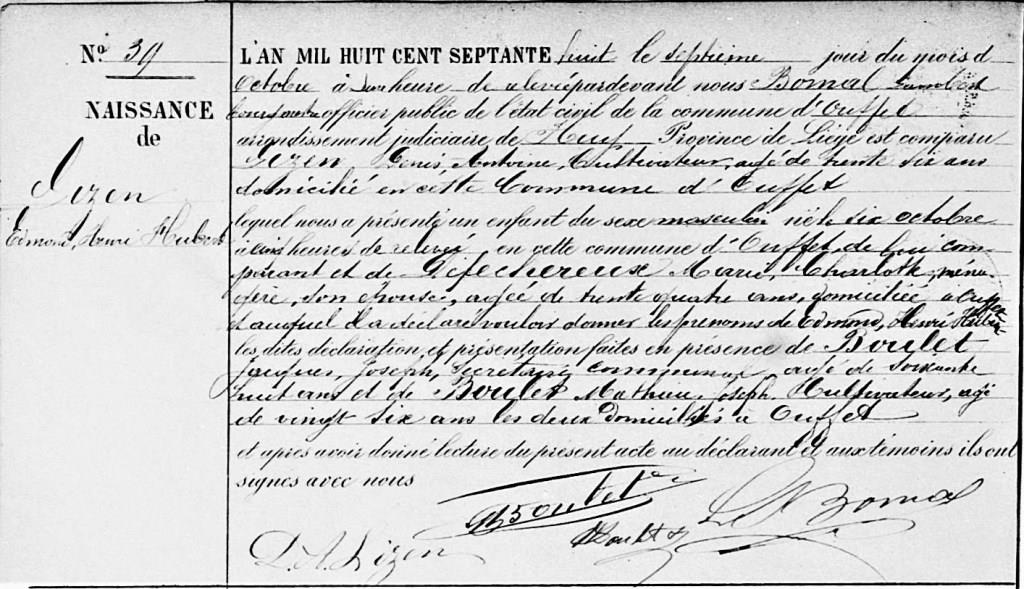 Nº 39
NAISSANCE
de
Lizen
Edmond, Henri Hubert
L'AN MIL HUIT CENT SEPTANTE huit le septième jour du mois d
Octobre à heure de relevée pardevant nous Bomal
officier public de l'état civil de la commune d'Ouffet
arrondissement judiciaire de Huy Province de Liége est comparu
Lizen, Denis, Antoine, Cultivateur, agé de trente six ans
domicilié en cette Commune d'Ouffet
lequel nous a présenté un enfant du sexe masculin né le six octobre
à heures de relevée en cette commune d'Ouffet, de lui com-
parant et de Defechereuse Marie, Charlotte, ména-
gère, son épouse, agée de trente quatre ans, domiciliée à Ouffet
et auquel il a déclaré vouloir donner les prénoms de Edmond, Henri Hubert
les dites déclaration et présentation faites en présence de Boulet
Jacques, Joseph, Secrétaire communal agé de soixante
huit ans et de Boulet Mathieu, Joseph, Cultivateur, agé
de vingt six ans les deux domiciliés à Ouffet
et après avoir donné lecture du présent acte au déclarant et aux témoins ils ont
signés avec nous
Boulet
Bomal
Boulet
D. A. Lizen